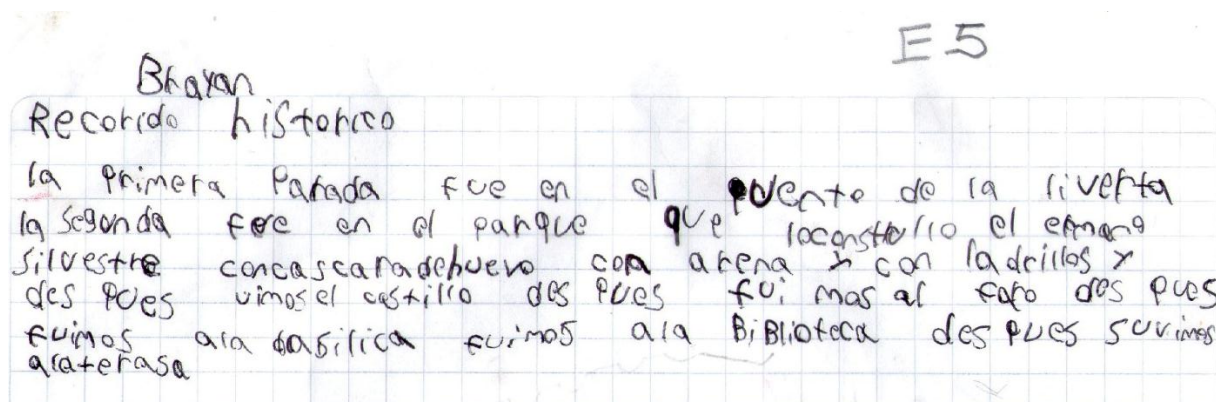 E5
Brayan
Recorido historico
la primera Parada fue en el puente de la liverta
la segunda fue en el parque que loconstrullo el ermano
silvestre concascaradehuevo con arena y con ladrillos y
des pues vimos el castillo des pues fui mos al faro des pues
fuimos ala basilica fuimos ala BiBlioteca des pues suvimos
alaterasa